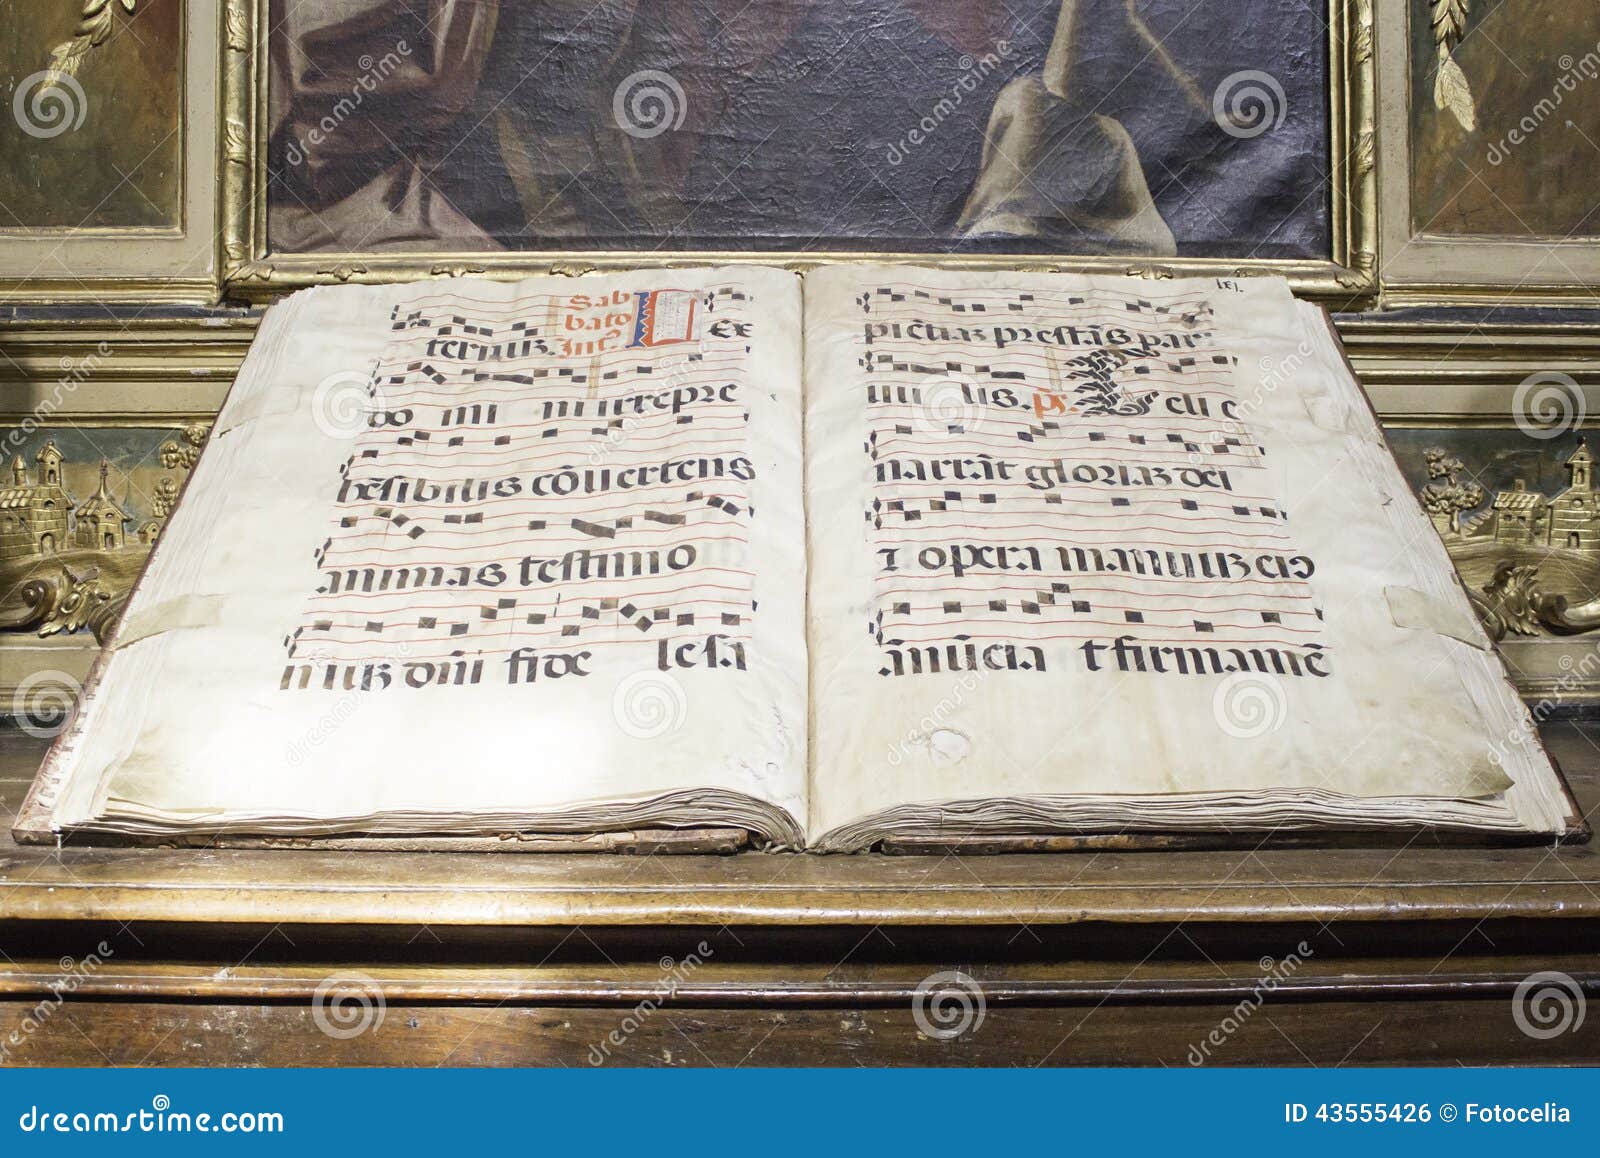 Sab
bato
Int°
ternuʒ. L ex
do mi ni irrepre
hẽsibilis cõuertens
animas testimo
niuʒ dñi fide le sa
lxj.
piẽtiaʒ prestãs par
uu lis. ps. Celi e
narrãt gloriaʒ dei
⁊ opera manuuʒ eiꝰ
ãnũcia t firmamẽ
dreamstime.com
ID 43555426 © Fotocelia